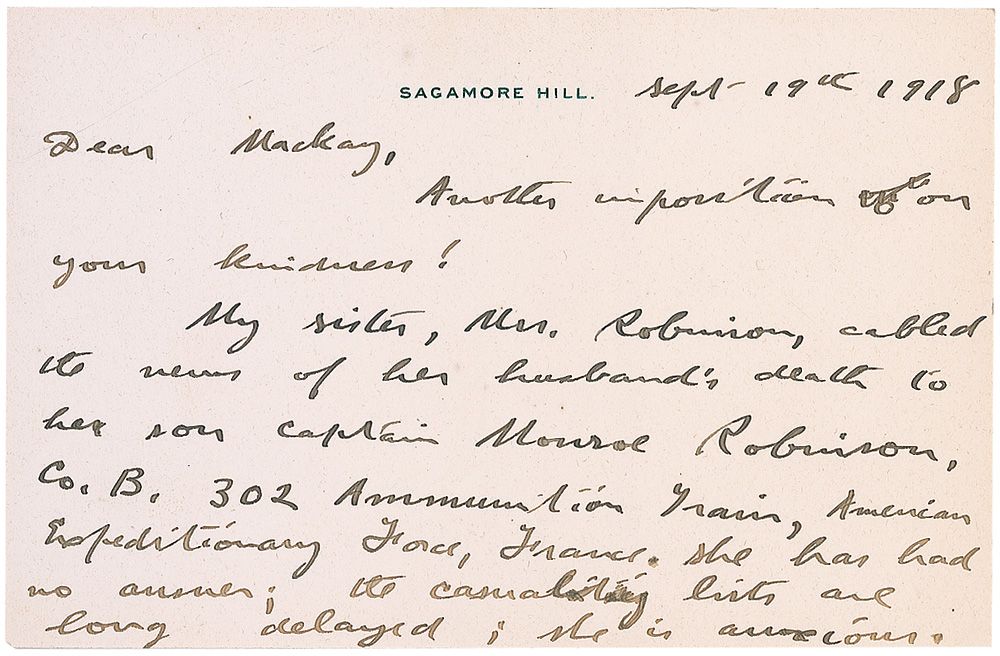 SAGAMORE HILL. Sept 19th 1918
Dear Mackay,
Another imposition on
your kindness!
My sister, Mrs. Robinson, cabled
the news of her husband's death to
her son Captain Monroe Robinson,
Co. B. 302 Ammunition Train, American
Expeditionary Force, France. She has had
no answer; the casualty lists are
long delayed; she is anxious.